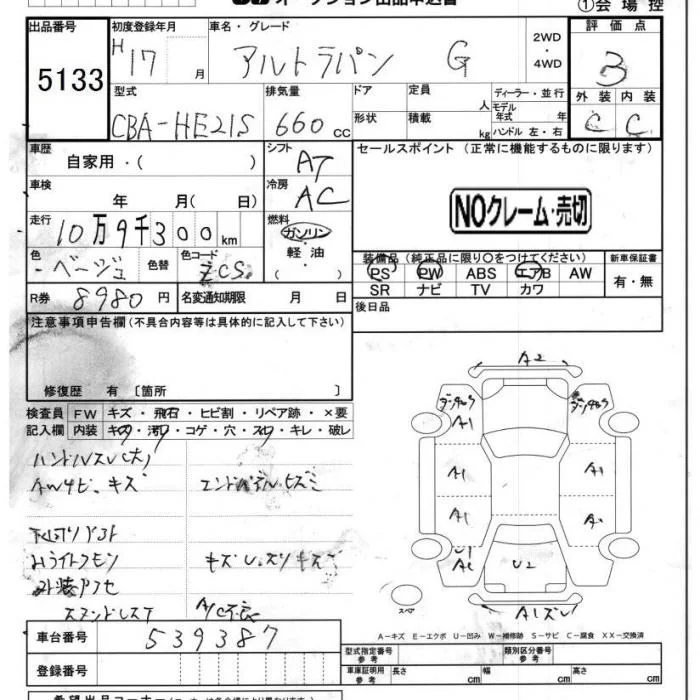 オークション出品申込書
①会場控
出品番号
5133
初度登録年月
H 17 月
車名・グレード
アルトラパン G
2WD
・
4WD
評価点
3
外装 内装
C C
型式
CBA-HE21S
排気量
660 cc
ドア
形状
定員 人
積載 kg
ディーラー・並行
モデル年式 年
ハンドル 左・右
車歴
自家用・( )
シフト
AT
車検
年 月( 日)
冷房
AC
走行
10万9千300km
燃料
ガソリン
・
軽油
・
( )
色
ベージュ
色替
色コード
ZCS
R券 8980円
名変通知期限 月 日
セールスポイント(正常に機能するものに限ります)
NOクレーム・売切
装備品(純正品に限り〇をつけてください)
PS PW ABS エアB AW
SR ナビ TV カワ
新車保証書
有・無
後日品
注意事項申告欄(不具合内容等は具体的に記入して下さい)
修復歴 有〔箇所 〕
検査員
記入欄
FW キズ・飛石・ヒビ割・リペア跡・×要
内装 キズ・汚れ・コゲ・穴・スレ・キレ・破レ
ハンドルスレ(大)
AWサビ、キズ
下廻りサビ
ライトクモリ
A/C不良
A2
A1
A1
A1
A1
A2
U1
A1
U2
A1
A1ズレ
スペア
A-キズ E-エクボ U-凹み W-補修跡 S-サビ C-腐食 XX-交換済
車台番号
539387
登録番号
型式指定番号
参考
類別区分番号
参考
車庫証明用
参考
長さ cm 幅 cm 高さ cm